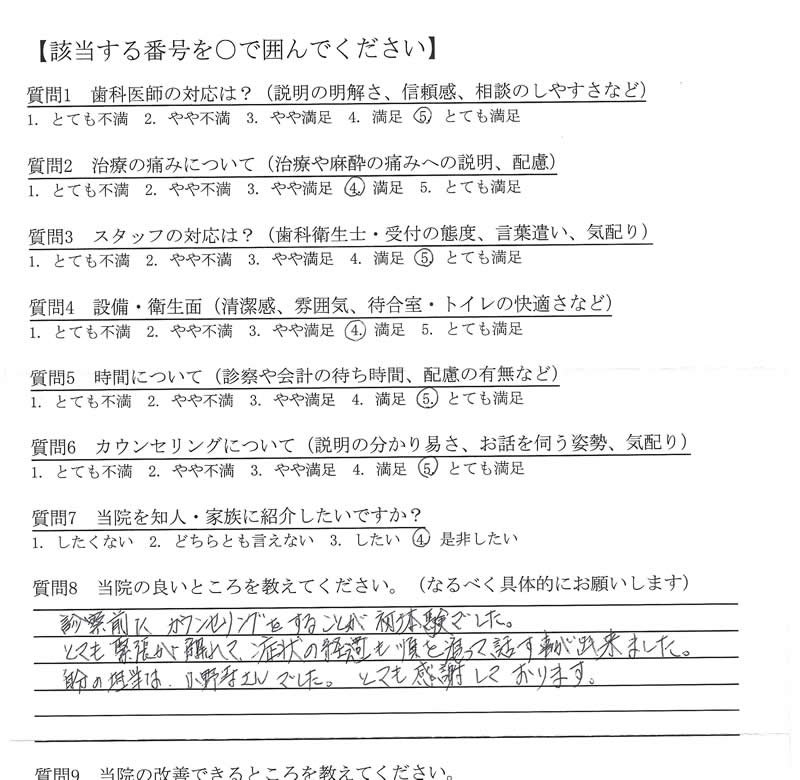 【該当する番号を○で囲んでください】
質問1 歯科医師の対応は？（説明の明解さ、信頼感、相談のしやすさなど）
1. とても不満 2. やや不満 3. やや満足 4. 満足 5. とても満足
質問2 治療の痛みについて（治療や麻酔の痛みへの説明、配慮）
1. とても不満 2. やや不満 3. やや満足 4. 満足 5. とても満足
質問3 スタッフの対応は？（歯科衛生士・受付の態度、言葉遣い、気配り）
1. とても不満 2. やや不満 3. やや満足 4. 満足 5. とても満足
質問4 設備・衛生面（清潔感、雰囲気、待合室・トイレの快適さなど）
1. とても不満 2. やや不満 3. やや満足 4. 満足 5. とても満足
質問5 時間について（診察や会計の待ち時間、配慮の有無など）
1. とても不満 2. やや不満 3. やや満足 4. 満足 5. とても満足
質問6 カウンセリングについて（説明の分かり易さ、お話を伺う姿勢、気配り）
1. とても不満 2. やや不満 3. やや満足 4. 満足 5. とても満足
質問7 当院を知人・家族に紹介したいですか？
1. したくない 2. どちらとも言えない 3. したい 4. 是非したい
質問8 当院の良いところを教えてください。（なるべく具体的にお願いします）
診察前に カウンセリングをすることが初体験でした。
とても緊張が解れて、症状の経過も順を追って話す事が出来ました。
自分の担当は、小野寺さんでした。とても感謝しております。
質問9 当院の改善できるところを教えてください。